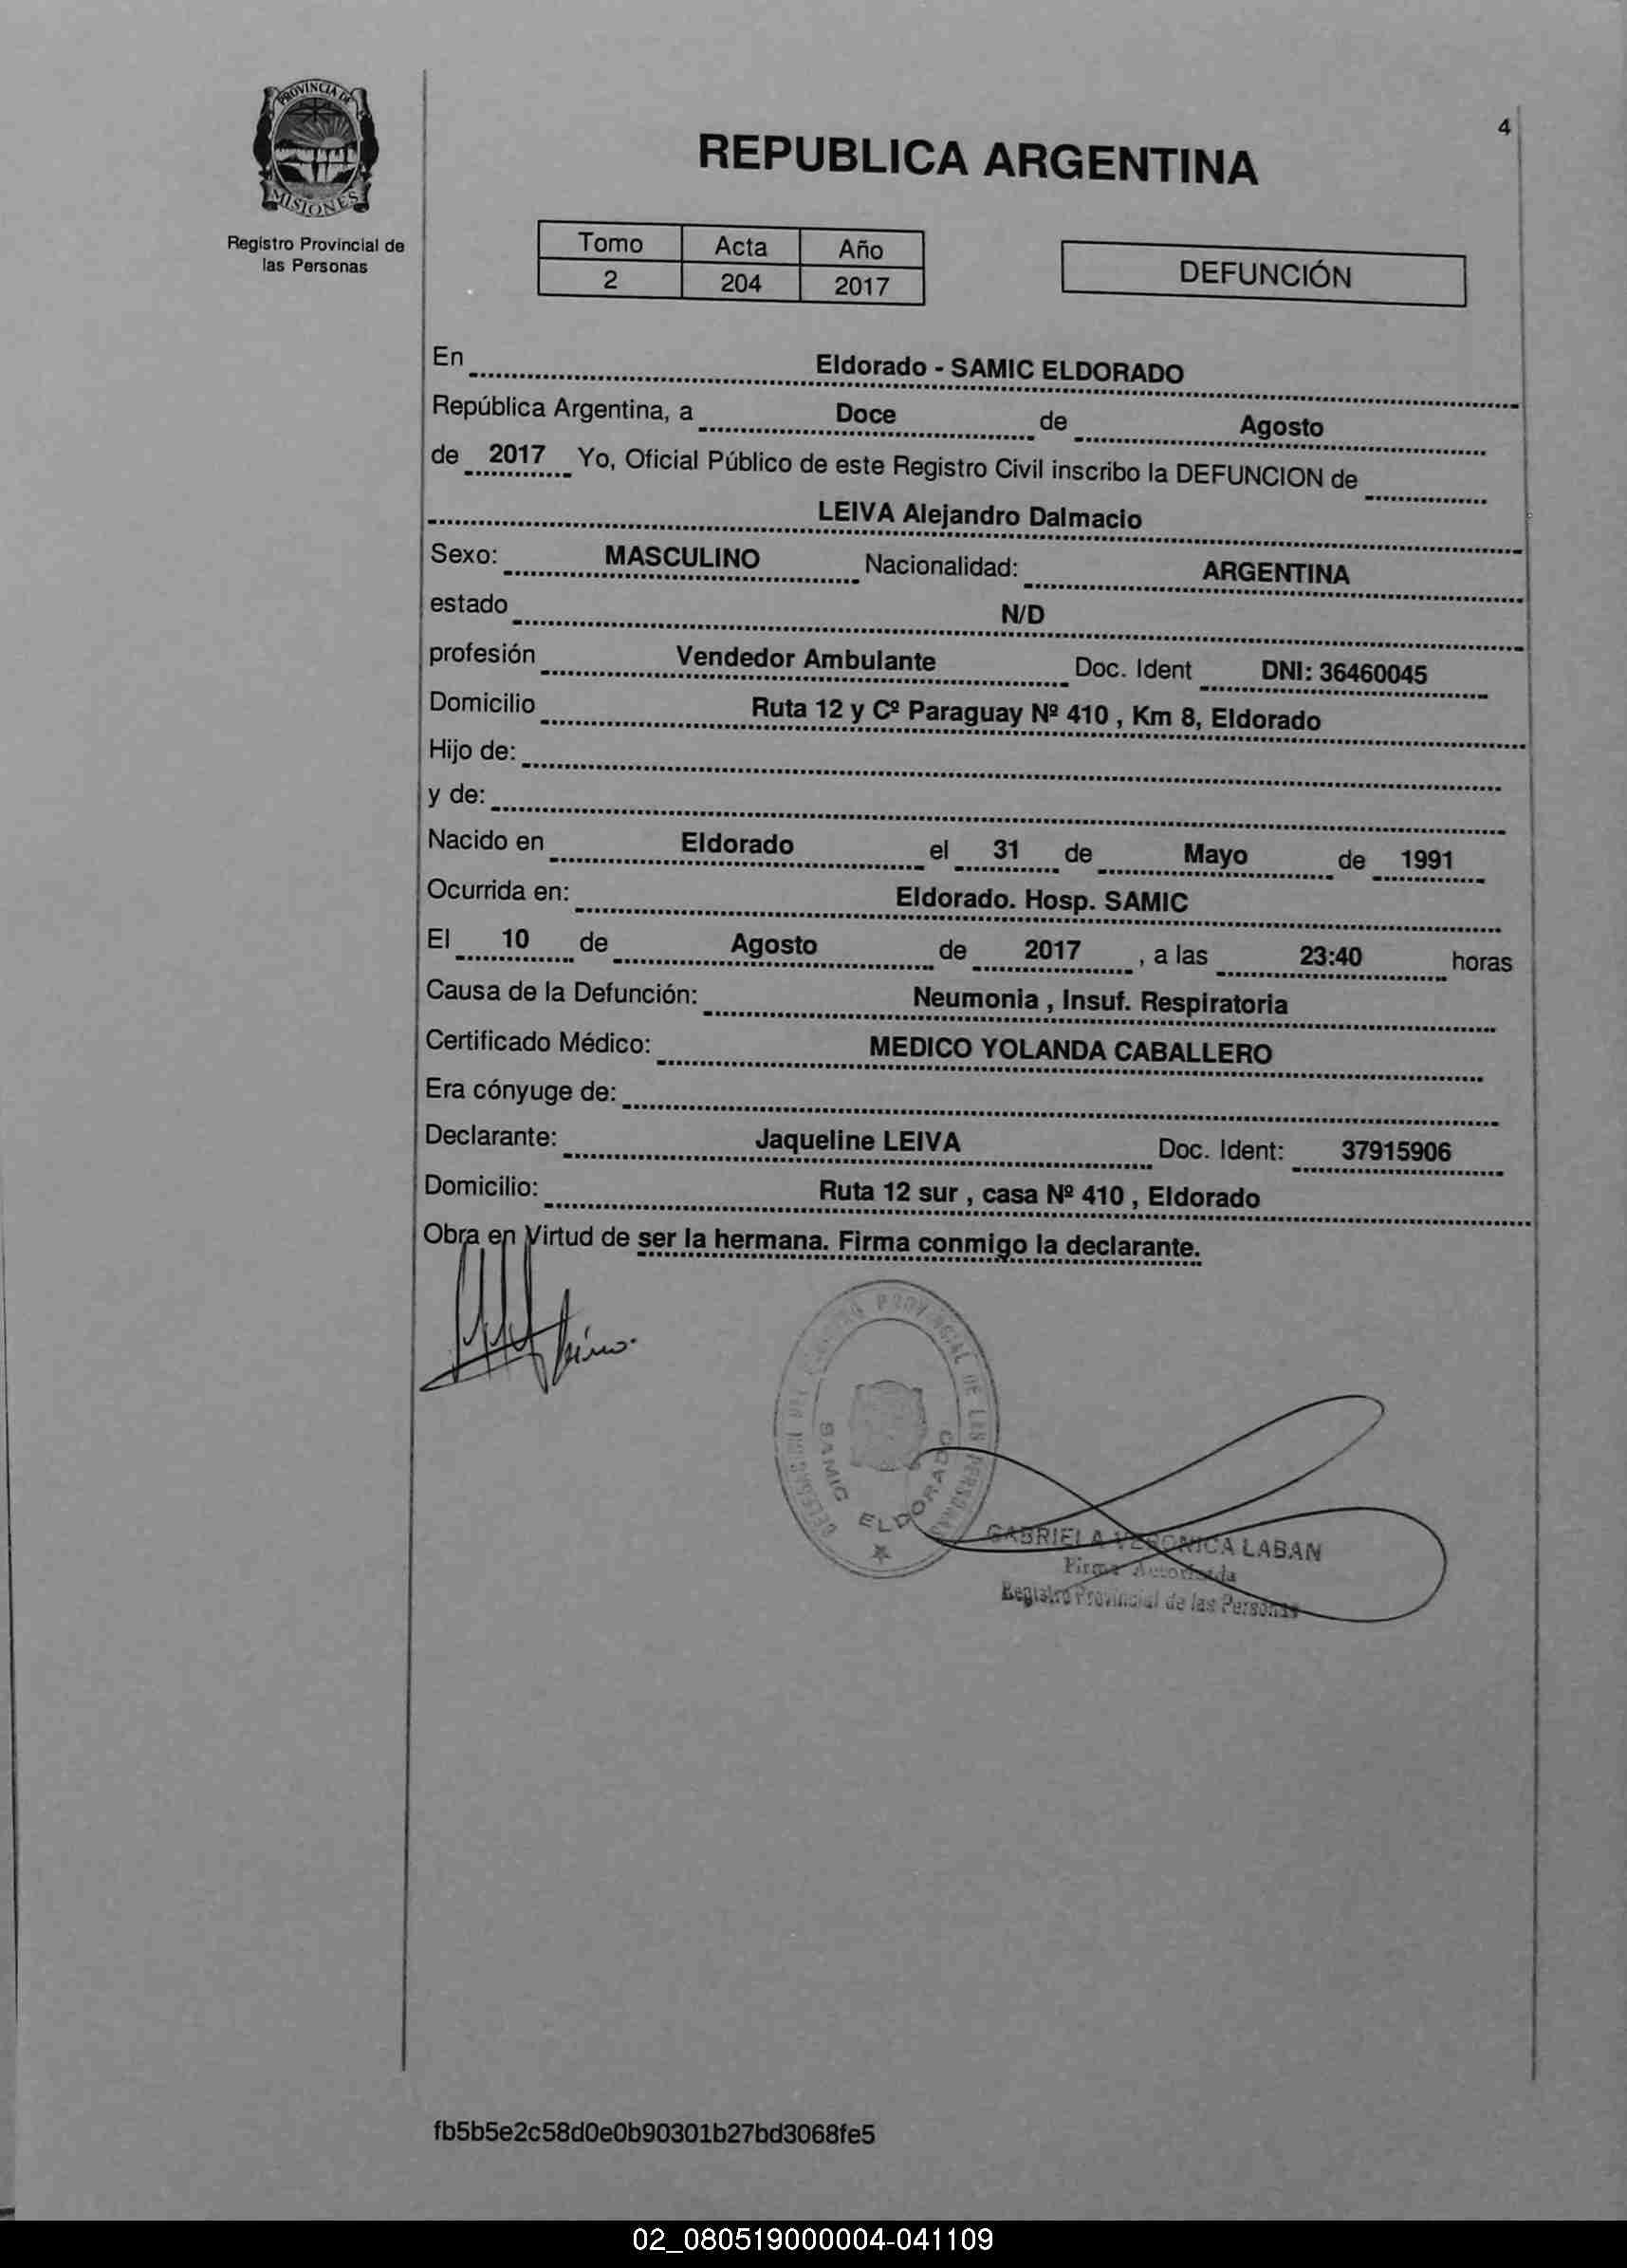 PROVINCIA DE
MISIONES
Registro Provincial de
las Personas
4
REPUBLICA ARGENTINA
Tomo Acta Año
2 204 2017
DEFUNCIÓN
En Eldorado - SAMIC ELDORADO
República Argentina, a Doce de Agosto
de 2017 Yo, Oficial Público de este Registro Civil inscribo la DEFUNCION de
LEIVA Alejandro Dalmacio
Sexo: MASCULINO Nacionalidad: ARGENTINA
estado N/D
profesión Vendedor Ambulante Doc. Ident DNI: 36460045
Domicilio Ruta 12 y Cº Paraguay Nº 410 , Km 8, Eldorado
Hijo de:
y de:
Nacido en Eldorado el 31 de Mayo de 1991
Ocurrida en: Eldorado. Hosp. SAMIC
El 10 de Agosto de 2017 , a las 23:40 horas
Causa de la Defunción: Neumonia , Insuf. Respiratoria
Certificado Médico: MEDICO YOLANDA CABALLERO
Era cónyuge de:
Declarante: Jaqueline LEIVA Doc. Ident: 37915906
Domicilio: Ruta 12 sur , casa Nº 410 , Eldorado
Obra en Virtud de ser la hermana. Firma conmigo la declarante.
PROVINCIAL DE LAS PERSONAS
SAMIC ELDORADO
GABRIELA VERONICA LABAN
Firma Autorizada
Registro Provincial de las Personas
fb5b5e2c58d0e0b90301b27bd3068fe5
02_080519000004-041109